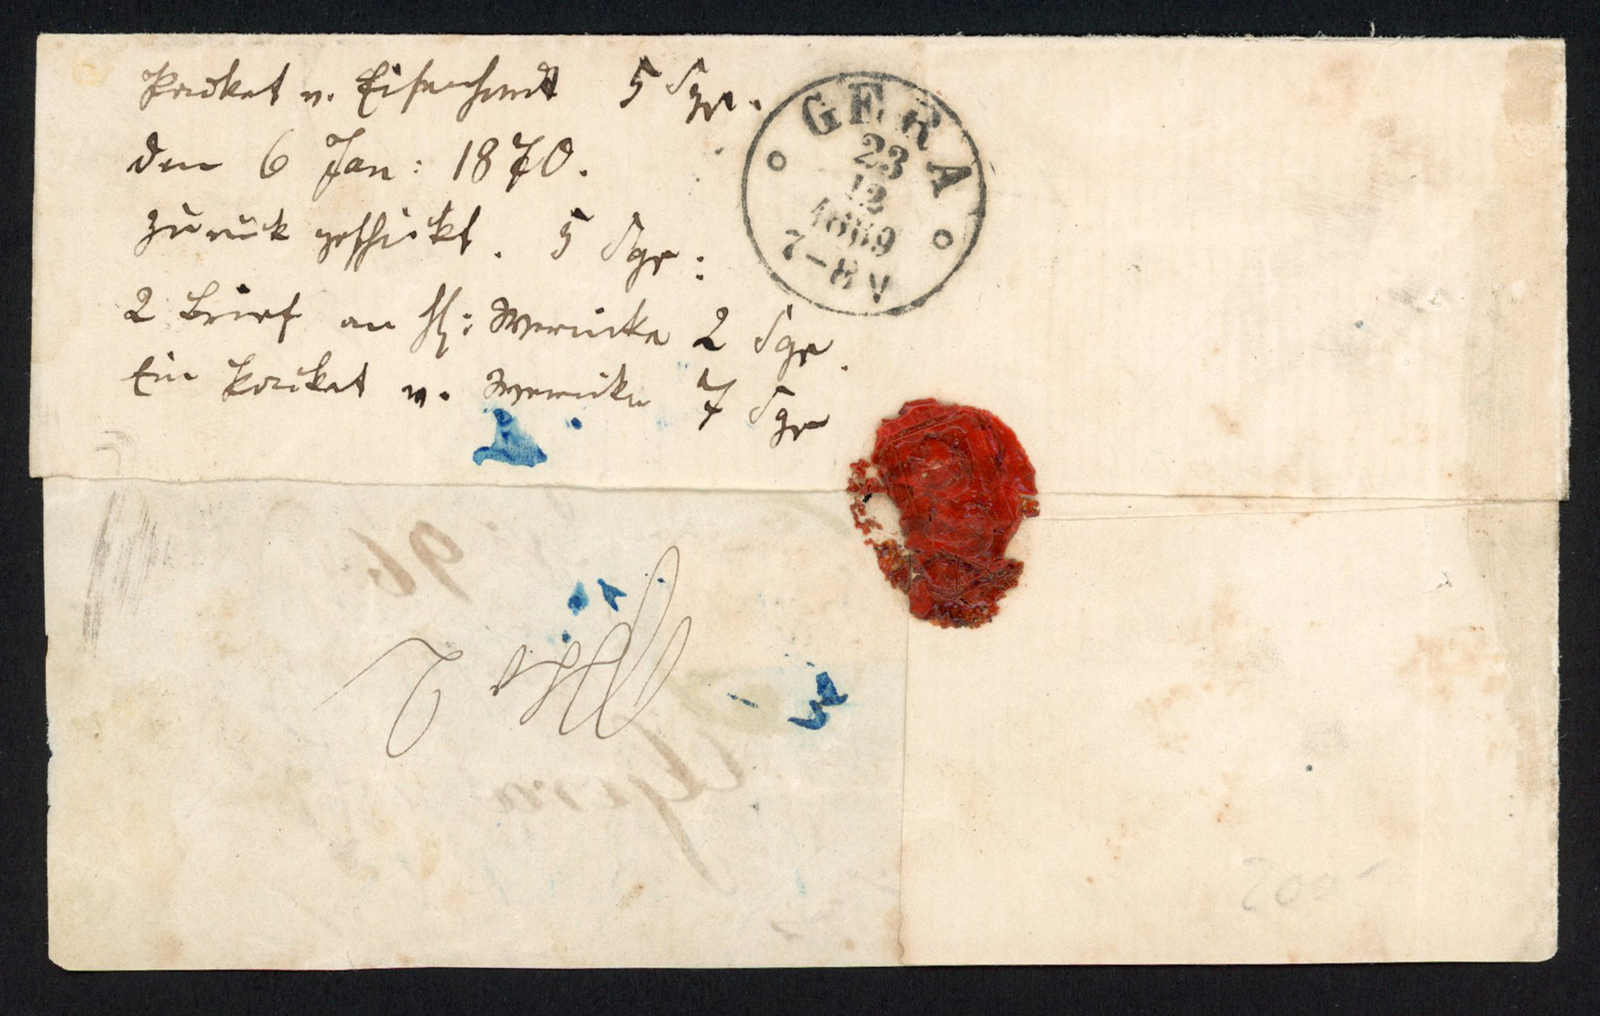 Packet v. Eisenhardt 5 Sgr.
den 6 Jan: 1870.
zurück geschickt. 5 Sgr:
2 Brief an H: Wernicke 2 Sgr.
Ein Packet v. Wernicke 7 Sgr
GERA
23
12
1869
7-8 V
96
Gera
200-